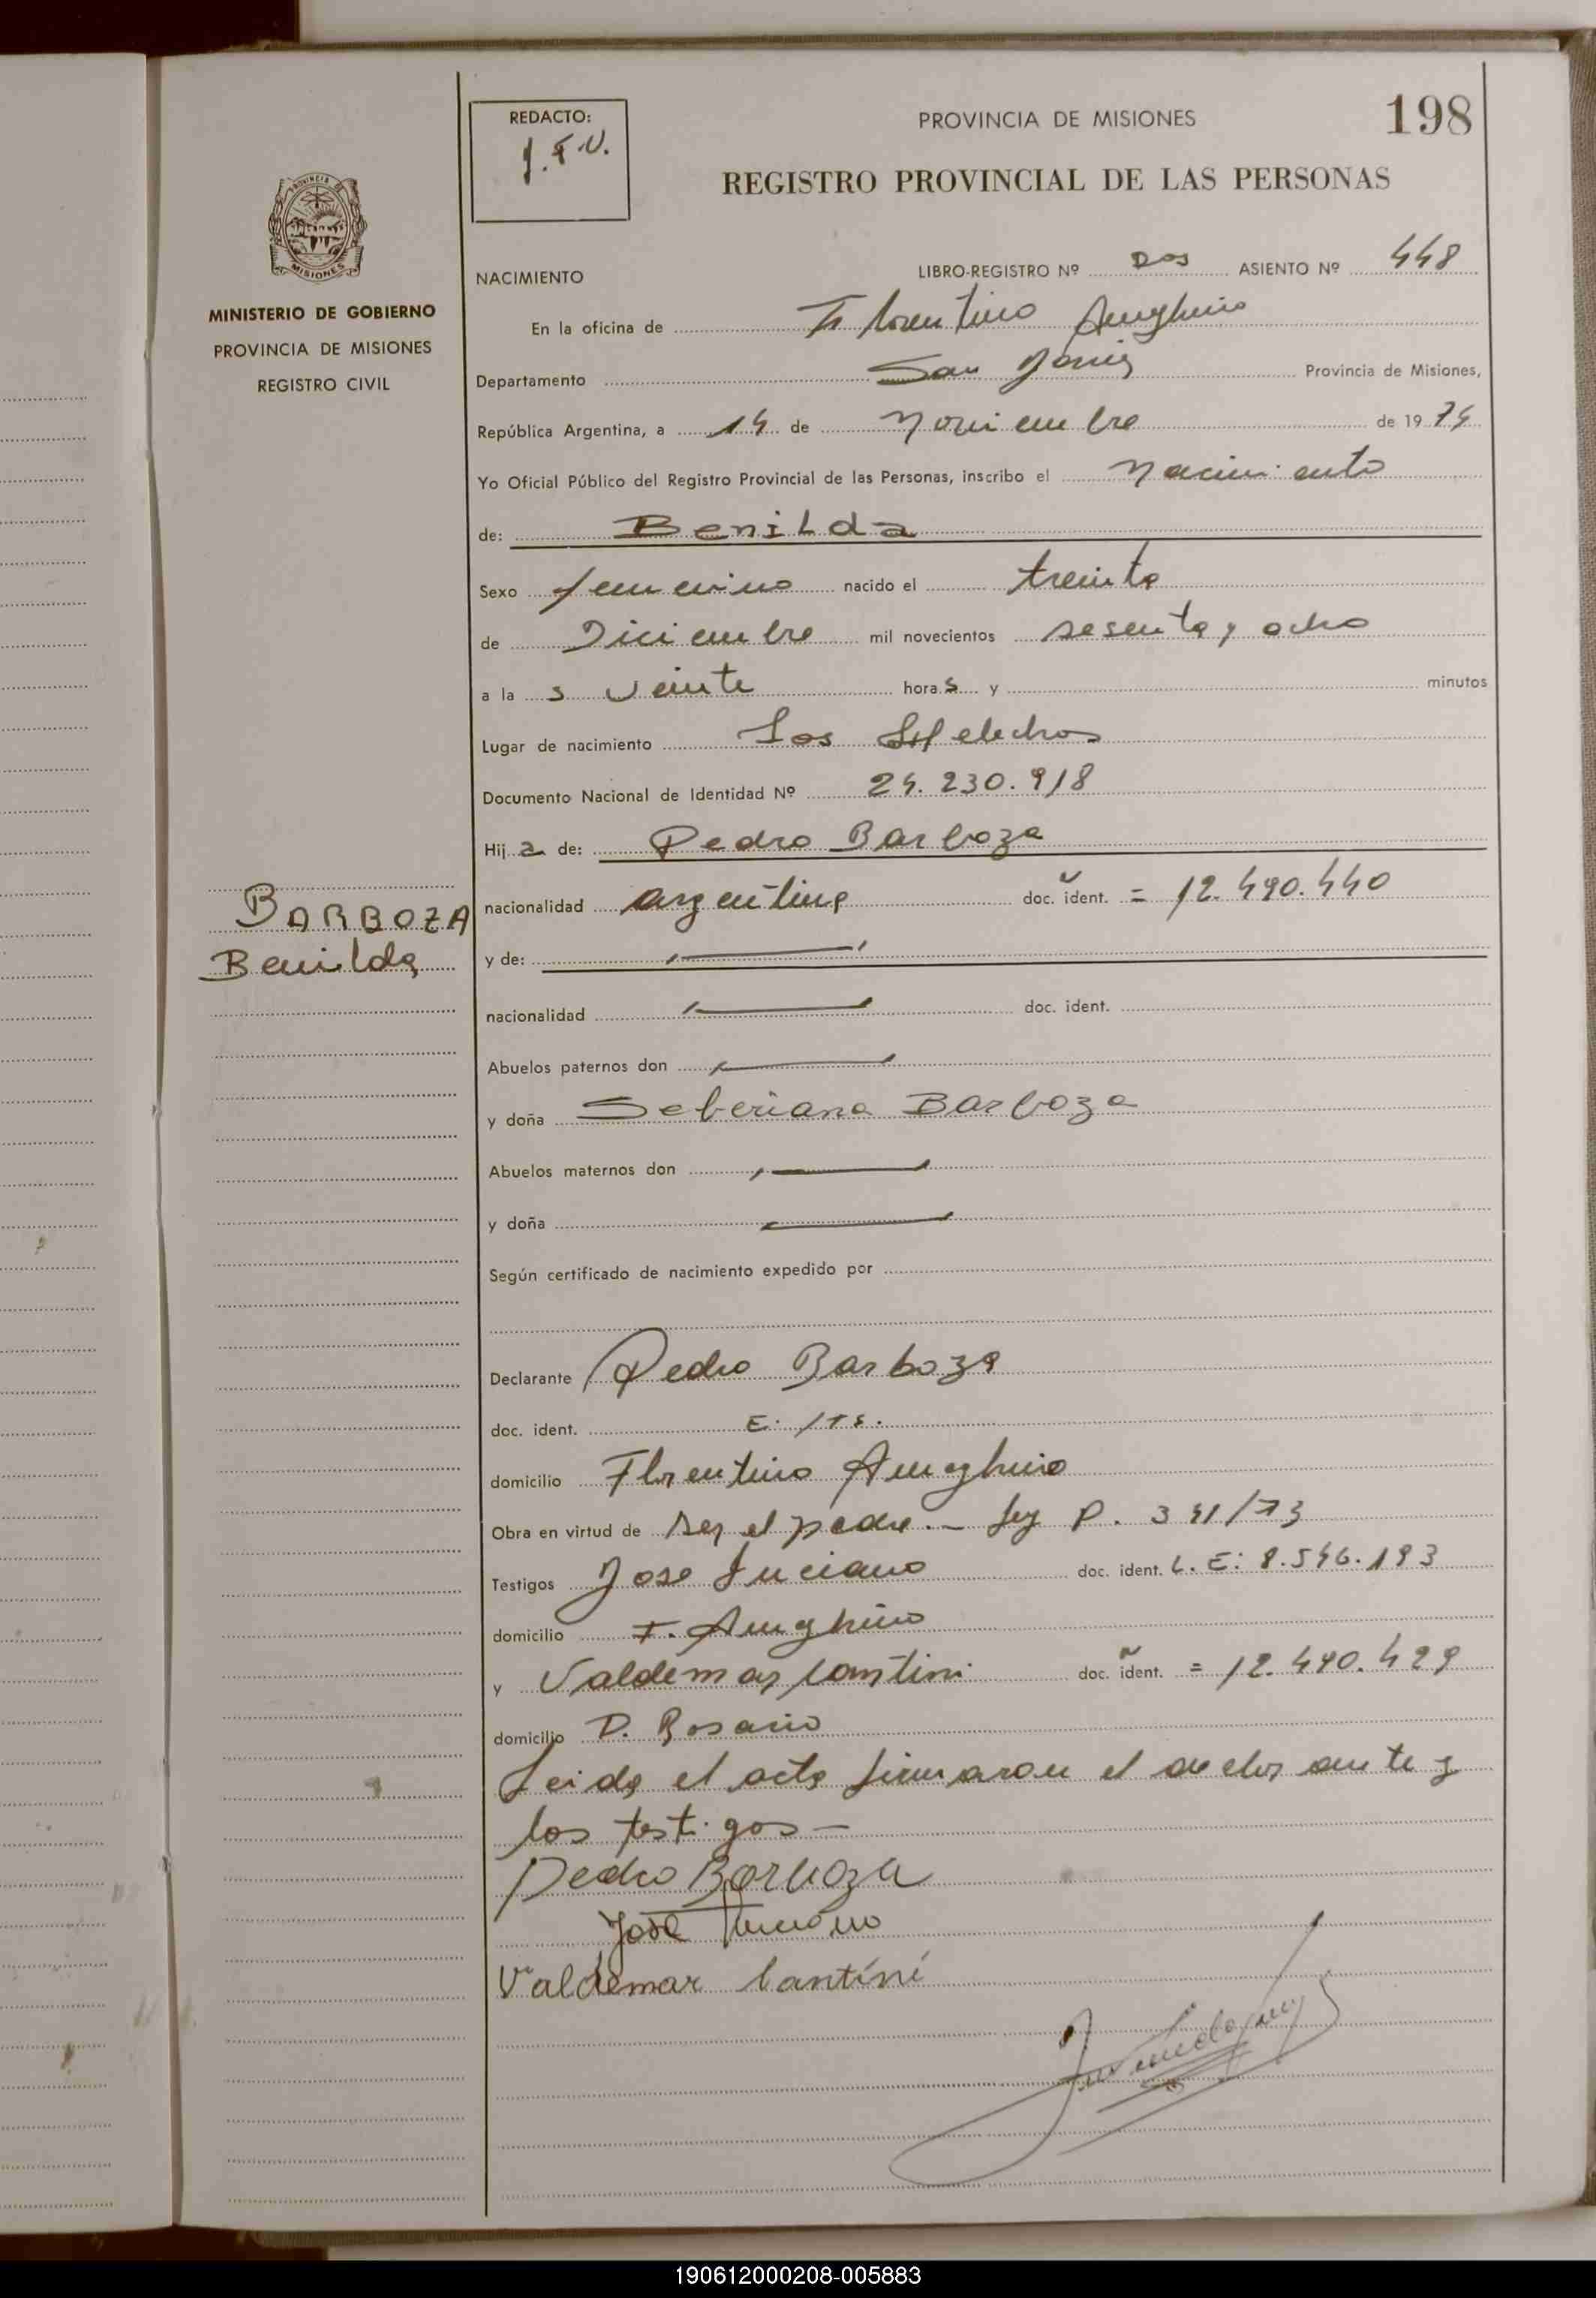 REDACTO:
J.F.V.
PROVINCIA DE MISIONES
198
REGISTRO PROVINCIAL DE LAS PERSONAS
PROVINCIA DE
MISIONES
MINISTERIO DE GOBIERNO
PROVINCIA DE MISIONES
REGISTRO CIVIL
NACIMIENTO
LIBRO-REGISTRO Nº Dos ASIENTO Nº 448
En la oficina de Florentino Ameghino
Departamento San Javier Provincia de Misiones,
República Argentina, a 14 de Noviembre de 1974
Yo Oficial Público del Registro Provincial de las Personas, inscribo el Nacimiento
de: Benilda
Sexo femenino nacido el treinta
de Diciembre mil novecientos sesenta y ocho
a la s veinte hora s y minutos
Lugar de nacimiento Los Helechos
Documento Nacional de Identidad Nº 24.230.918
Hij a de: Pedro Barboza
nacionalidad argentina doc. ident. = 12.490.440
BARBOZA
Benilda
y de:
nacionalidad doc. ident.
Abuelos paternos don
y doña Seberiana Barboza
Abuelos maternos don
y doña
Según certificado de nacimiento expedido por
Declarante Pedro Barboza
doc. ident.
domicilio Florentino Ameghino
Obra en virtud de ser el padre.- Ley P. 341/73
Testigos Jose Luciano doc. ident. L.E: 8.546.193
domicilio F. Ameghino
y Valdemar Cantini doc. ident. = 12.490.429
domicilio D. Rosario
Leida el acta firmaron el declarante y
los testigos-
Pedro Barboza
José Luciano
Valdemar Cantini
190612000208-005883